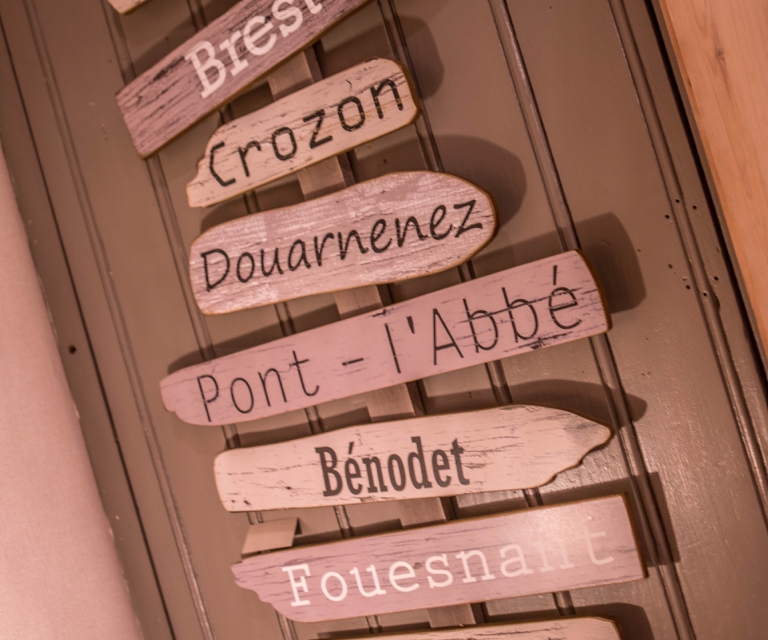 Brest
Crozon
Douarnenez
Pont - l'Abbé
Bénodet
Fouesnant